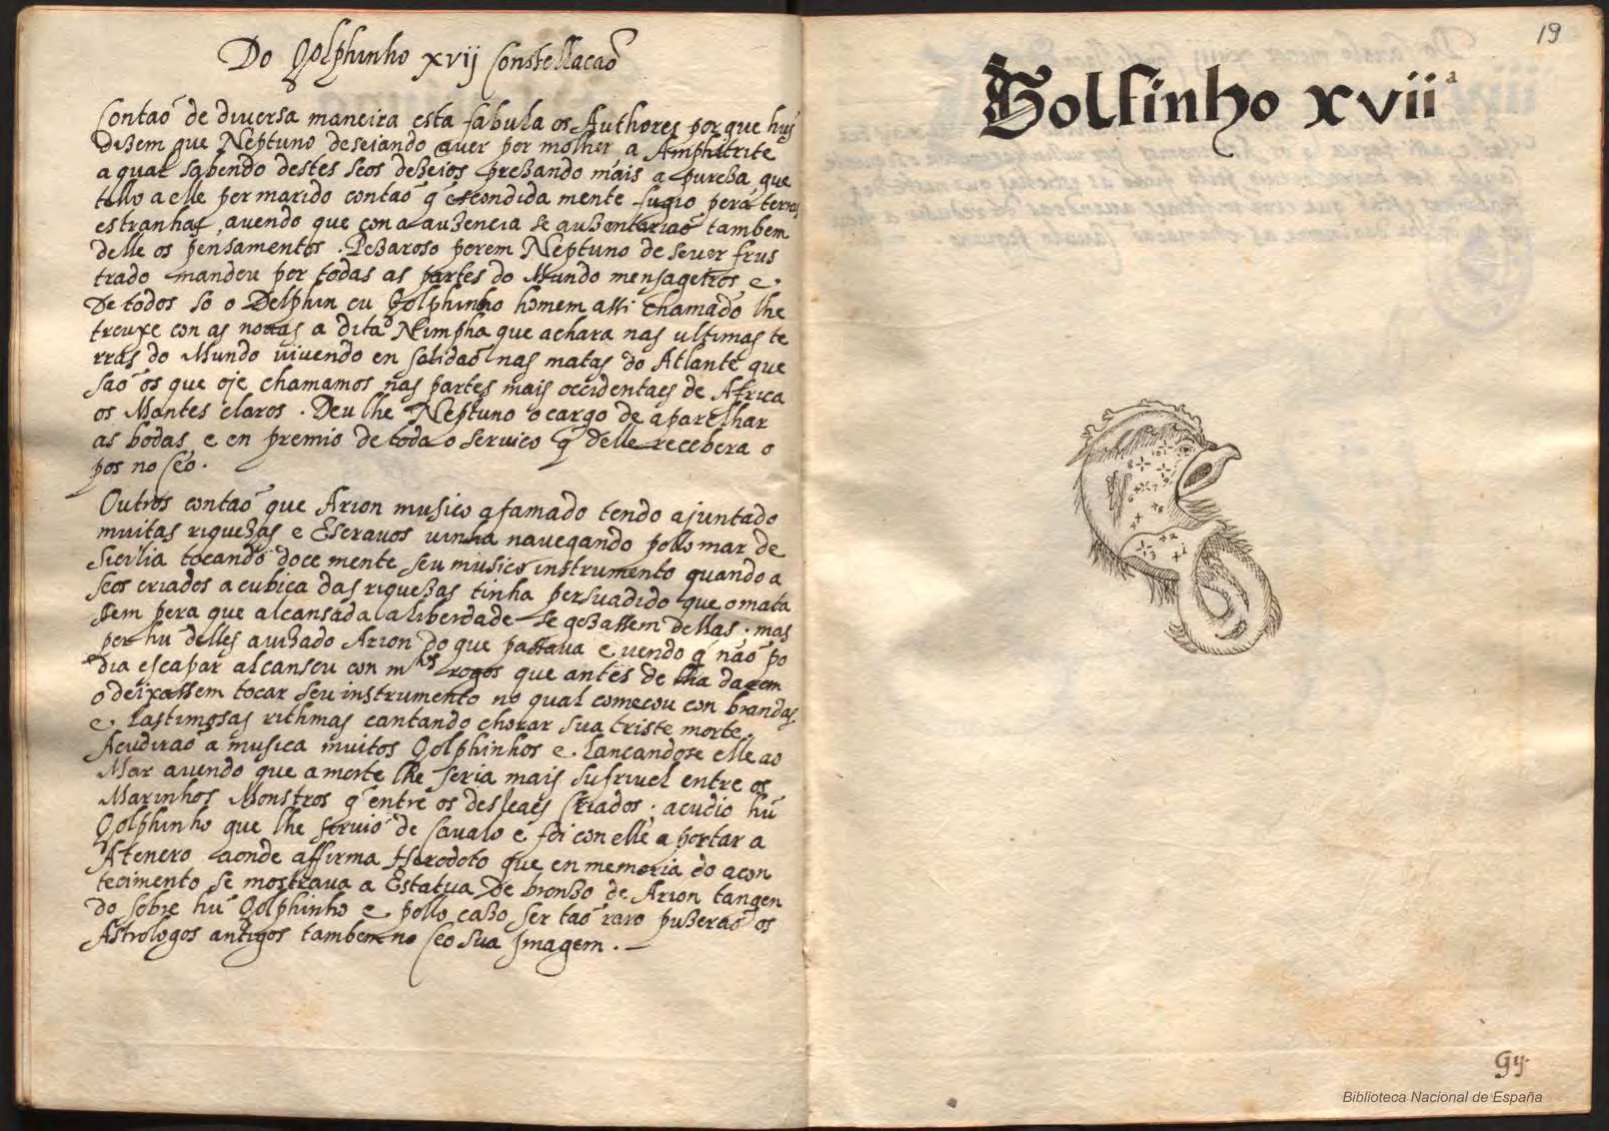 Do Golphinho xvij Constellacaõ
Contaõ de diversa maneira esta fabula os Authores porque hu͂s
dizem que Neptuno deseiando auer por molher a Amphitrite
a qual sabendo destes seos dezeios prezando mais a pureza que
tello a elle por marido contaõ q̃ escondida mente fugio pera terras
estranhas, auendo que con a auzencia se auzentariaõ tambem
delle os pensamentos. Pezaroso porem Neptuno de se uer frus
trado mandou por todas as partes do Mundo mensageiros e.
De todos so o Delphin ou Golphinho homem assi chamado lhe
trouxe con as nouas a dita Nimpha que achara nas ultimas te
rras do Mundo uiuendo en solidaõ nas matas do Atlante que
saõ os que oje chamamos nas partes mais occidentaes de Africa
os Montes claros. Deu lhe Neptuno o cargo de aparelhar
as bodas e en premio de toda o seruico q̃ delle recebera o
pos no Ceo.
Outros contaõ que Arion musico afamado tendo ajuntado
muitas riquezas e Escrauos uinha nauegando pollo mar de
Sicilia tocando doce mente seu musico instrumento quando a
seos criados a cubica das riquezas tinha persuadido que o mata
ssem pera que alcansada a liberdade se gozassem dellas. mas
por hu͂ delles auizado Arion do que passaua e uendo q̃ naõ po
dia escapar alcansou con m.tos rogos que antes de lha darem
o deixassem tocar seu instrumento no qual comecou con brandas
e. lastimosas rithmas cantando chorar sua triste morte.
Acudiraõ a musica muitos Golphinhos e. lancandose elle ao
Mar auendo que a morte lhe seria mais sufriuel entre os
Marinhos Monstros q̃ entre os desleaes Criados; acudio hu͂
Golphinho que lhe seruio de Caualo e foi con elle a portar a
Atenero aonde affirma Herodoto que en memoria do acon
tecimento se mostraua a Estatua de bronzo de Arion tangen
do sobre hu͂ Golphinho e pollo cazo ser taõ raro puzeraõ os
Astrologos antigos tambem no Ceo sua Jmagem.
19
Golfinho xvii.ª
Gij.
Biblioteca Nacional de España